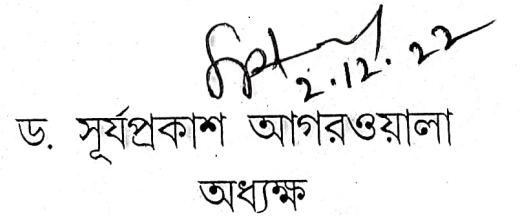 2.12.22
ড. সূর্যপ্রকাশ আগরওয়ালা
অধ্যক্ষ